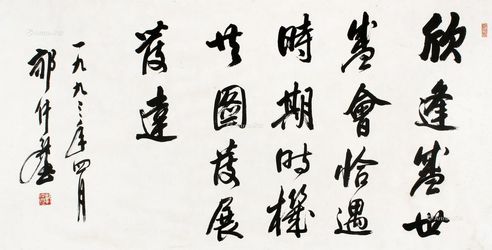 欣逢盛世
盛會恰遇
時期時機
共圖發展
發達
一九九三年四月